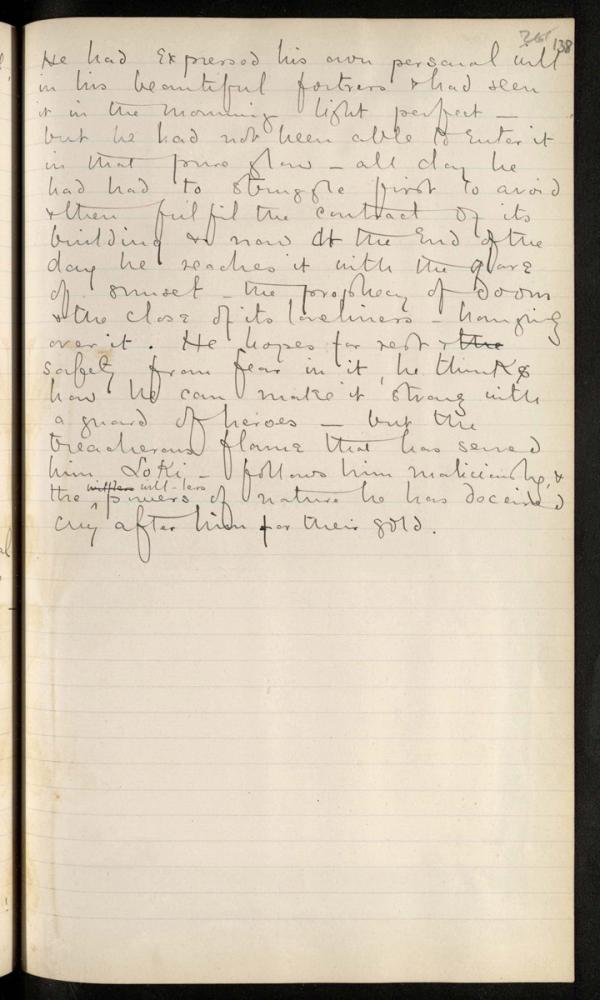 138
He had expressed his own personal will
in his beautiful fortress & had seen
it in the morning light perfect —
but he had not been able to enter it
in that pure glow – all day he
had had to struggle first to avoid
& then fulfil the contract of its
building & now at the end of the
day he reaches it with the glare
of sunset – the prophecy of doom
& the close of its loveliness – hanging
over it. He hopes for rest & the
safety from fear in it, he thinks
how he can make it strong with
a guard of heroes — but the
treacherous flame that has served
him Loki – follows him maliciously, &
will-less
the powers of nature he has deceived
cry after him for their gold.